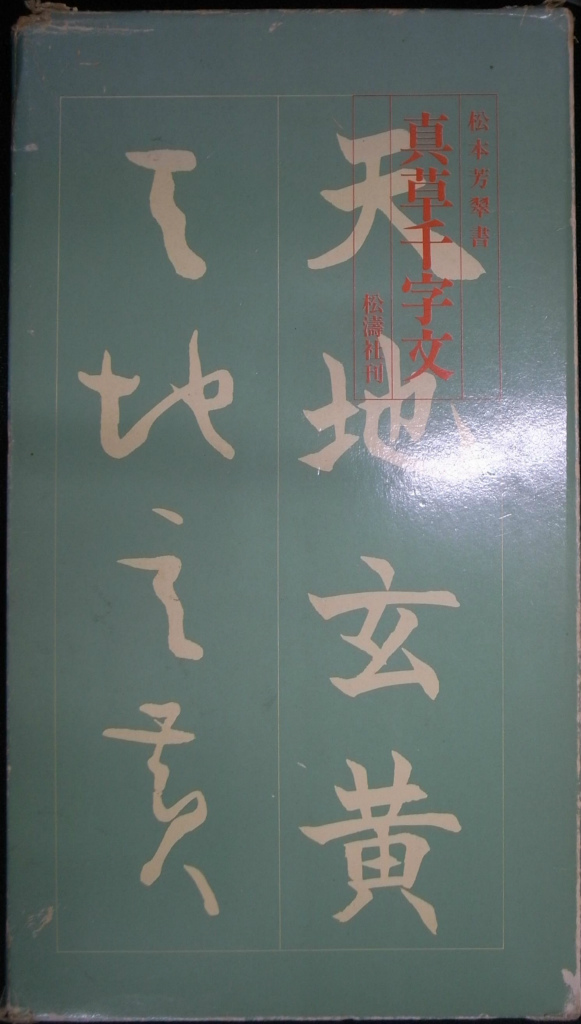 松本芳翠書
真草千字文
松濤社刊
天地玄黄
天地玄黄